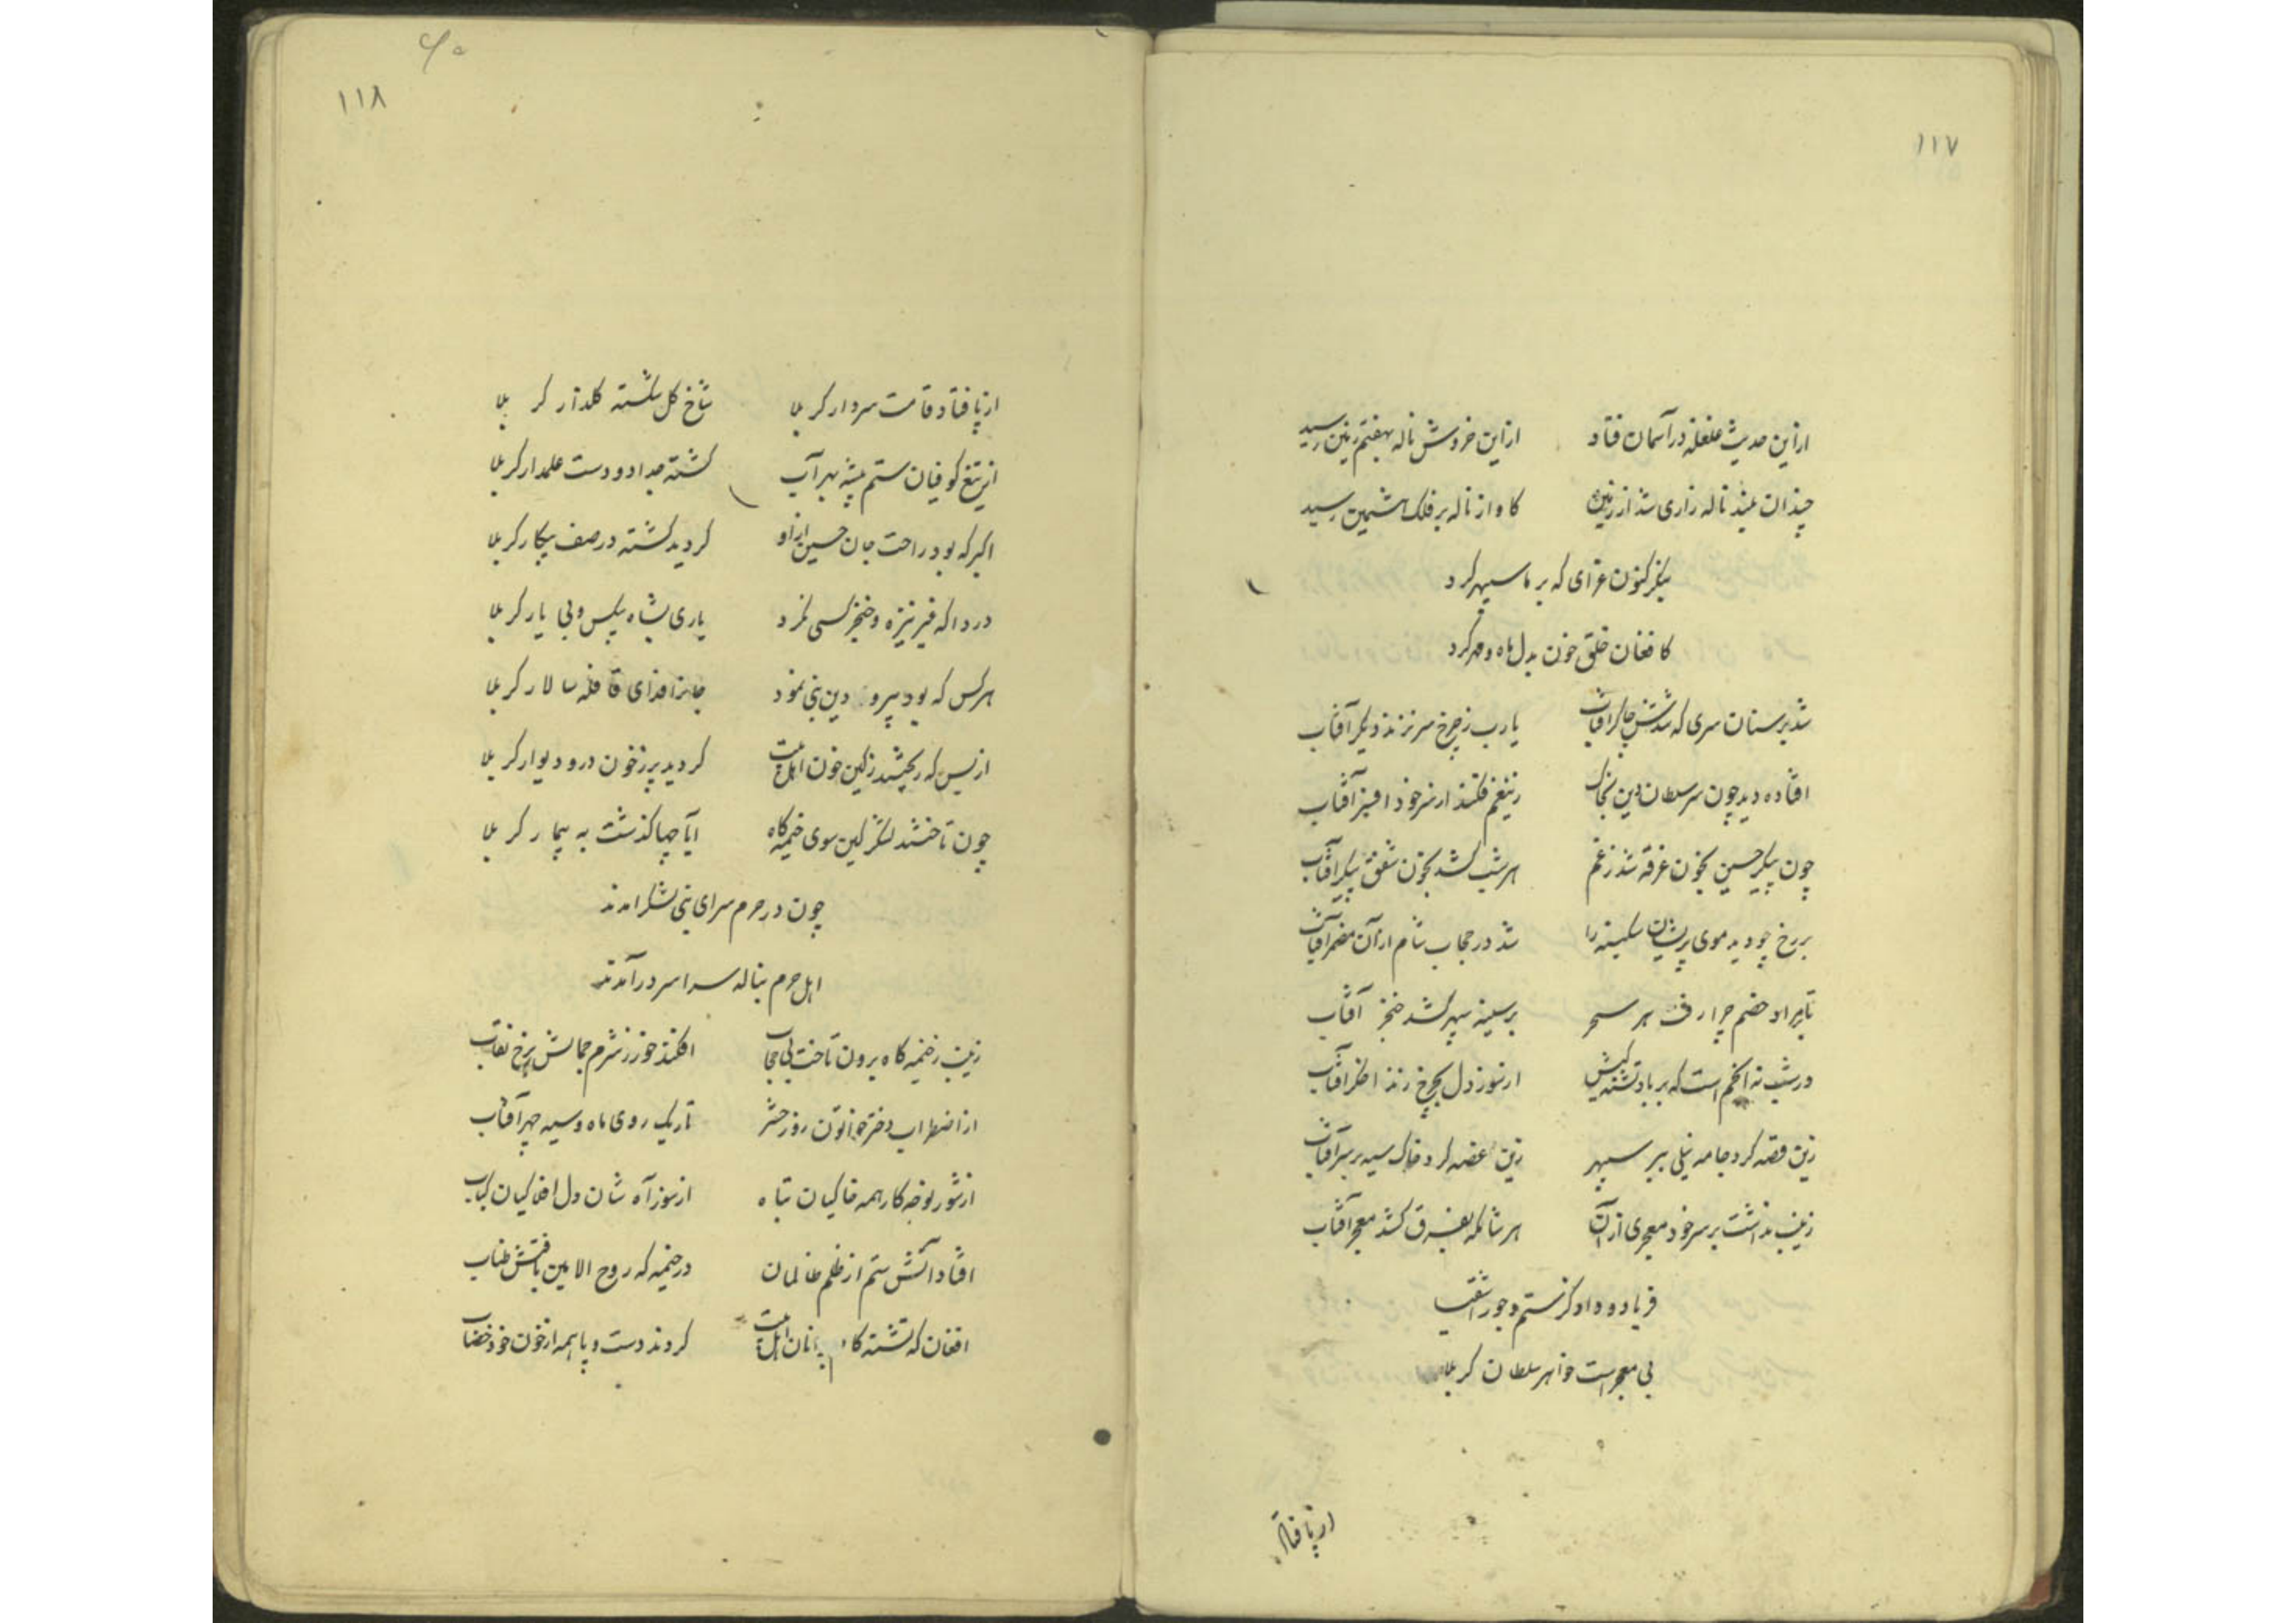 ۱۱۷
ازین حدیث غلغله در آسمان فتاد ازین خروش ناله بهفتم زمین رسید
چندان بلند ناله زاری شد از زمین کاواز ناله بر فلک هشتمین رسید
بنگر کنون عزای که بر ما سپهر کرد
کافغان خلق خون بدل ماه و مهر کرد
شد بر سنان سری که شدش چاکر آفتاب یا رب ز چرخ سر نزند دیگر آفتاب
افتاده دید چون سر سلطان دین بخاک زینغم فکند از سر خود افسر آفتاب
چون پیکر حسین بخون غرقه شد ز غم هر شب کشد بخون شفق پیکر آفتاب
بر رخ چو دید موی پریشان سکینه را شد در حجاب شام از آن مضمر آفتاب
خصم هر سحر بر سینه سپهر کشد خنجر آفتاب
در شب نه انجم است که بر یاد تشنه از سوز دل بچرخ زند اخگر آفتاب
زین قصه کرد جامه نیلی ببر سپهر زین غصه کرد خاک سیه بر سر آفتاب
زینب نداشت بر سر خود معجری از آن هر شامگه بفرق کشد معجر آفتاب
فریاد و داد کز ستم و جور اشقیا
بی معجر است خواهر سلطان کربلا
از پا فتاد
۱۱۸
از پا فتاد قامت سردار کربلا شاخ گل شکسته گلذار کربلا
از تیغ کوفیان ستم پیشه بهر آب گشته جدا دو دست علمدار کربلا
اکبر که بود راحت جان حسین ازو گردید کشته در صف پیکار کربلا
دردا که غیر نیزه و خنجر کسی نکرد یاری بشاه بیکس و بی یار کربلا
هر کس که بود پیرو دین نبی نمود جانرا فدای قافله سالار کربلا
از بس که ریختند ز کین خون اهل بیت گردید پر ز خون در و دیوار کربلا
چون تاختند لشگر کین سوی خیمه گاه آیا چها گذشت به بیمار کربلا
چون در حرم سرای نبی لشگر آمدند
اهل حرم بناله سراسر درآمدند
زینب ز خیمه گاه برون تاخت بی حجاب افکند خور ز شرم جمالش برخ نقاب
از اضطراب دختر خاتون روز حشر تاریک روی ماه و سیه چهر آفتاب
از شور نوحه کار همه خاکیان تباه از سوز آه شان دل افلاکیان کباب
افتاد آتش ستم از ظلم ظالمان در خیمه که روح الامین بافتش طناب
افغان که تشنه اهل بیت کردند دست و پا همه از خون خود خضاب